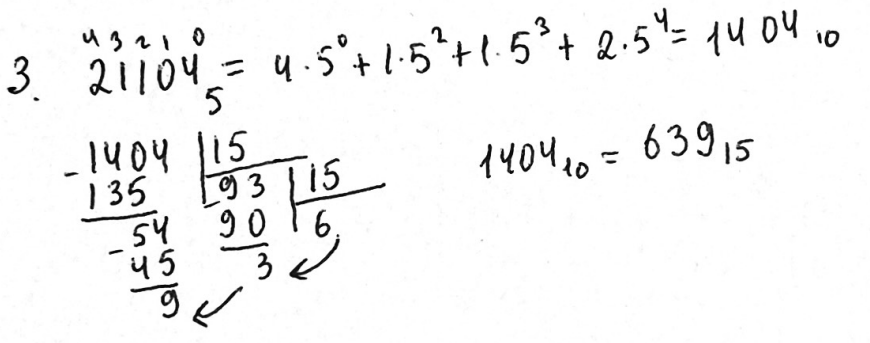 4 3 2 1 0
3. 21104₅ = 4·5⁰ + 1·5² + 1·5³ + 2·5⁴ = 1404₁₀
-1404 |15
135 -93 |15
-54 90 6
45 3
9
1404₁₀ = 639₁₅